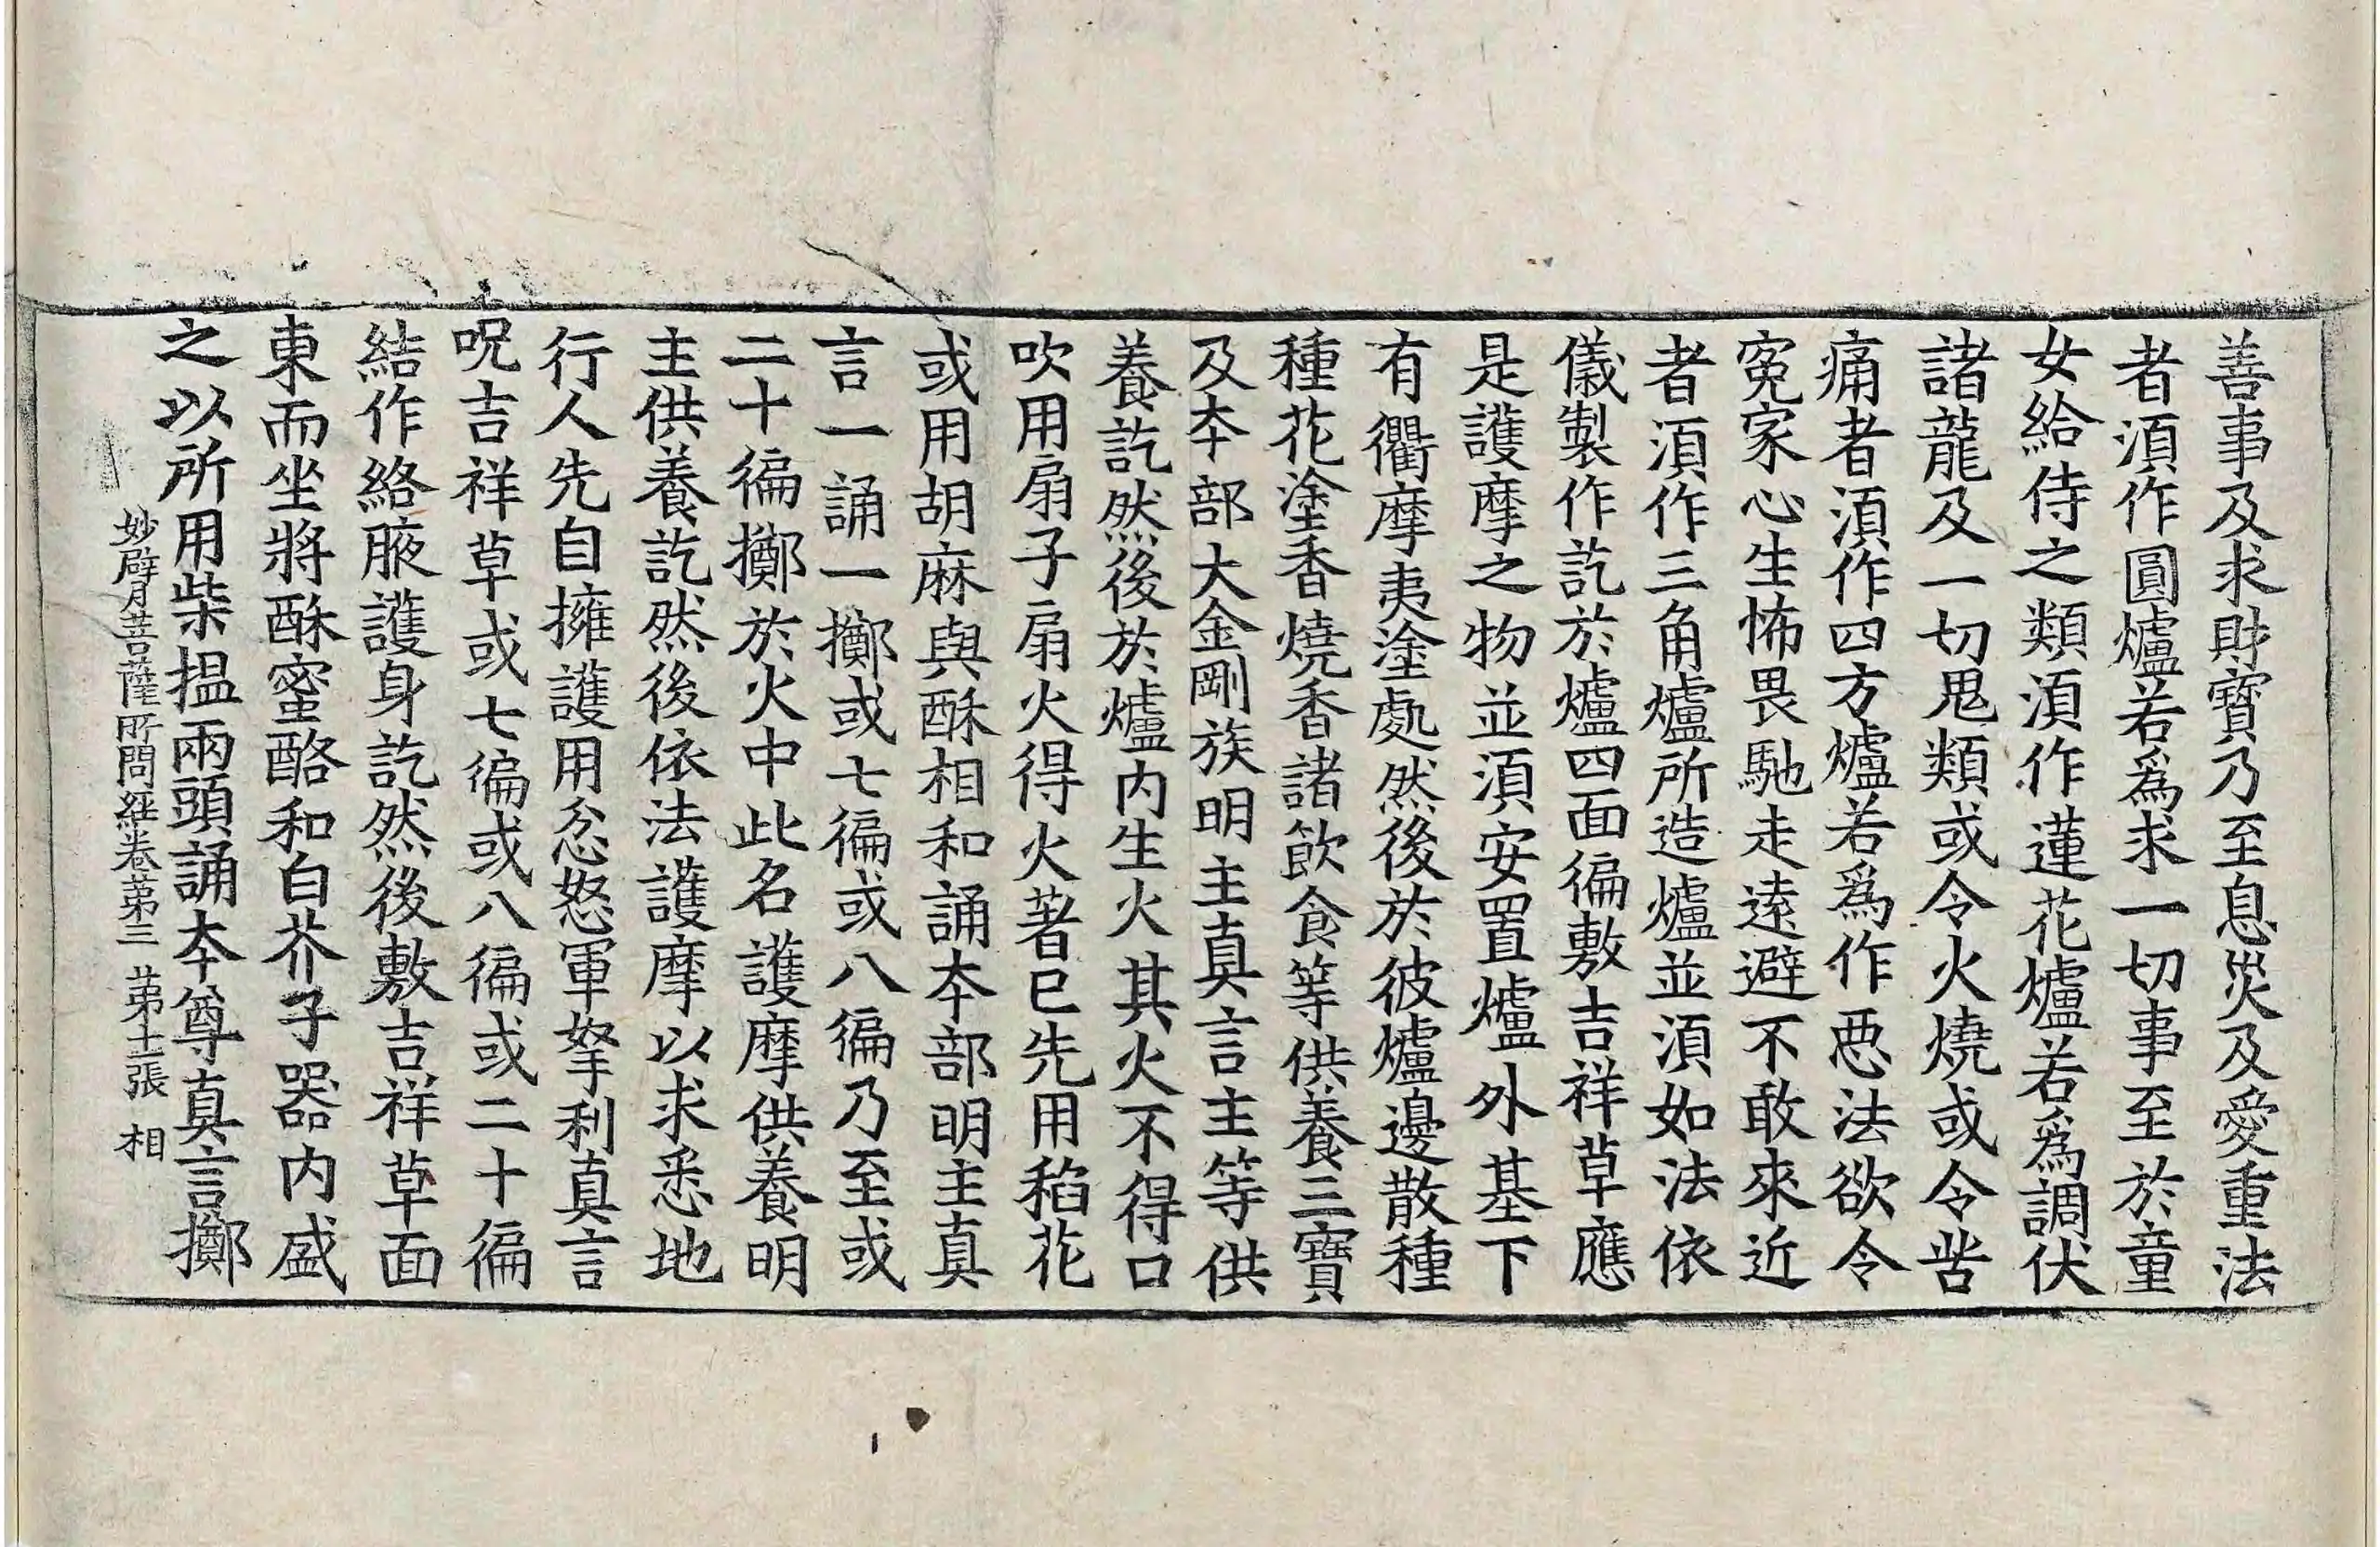 善事及求財寶乃至息災及愛重法
者湏作圓爐若爲求一切事至於童
女給侍之類湏作蓮花爐若爲調伏
諸龍及一切鬼類或令火燒或令苦
痛者湏作四方爐若爲作惡法欲令
寃家心生怖畏馳走逺避不敢來近
者湏作三角爐所造爐並湏如法依
儀製作訖於爐四面徧敷吉祥草應
是護摩之物並湏安置爐外基下
有衢摩夷塗處然後於彼爐邊散種
種花塗香燒香諸飲食等供養三寶
及夲部大金剛族明主真言主等供
養訖然後於爐内生火其火不得口
吹用扇子扇火得火著已先用稻花
或用胡麻與酥相和誦夲部明主真
言一誦一擲或七徧或八徧乃至或
二十徧擲於火中此名護摩供養明
主供養訖然後依法護摩以求悉地
行人先自擁護用忿怒軍拏利真言
呪吉祥草或七徧或八徧或二十徧
結作絡腋護身訖然後敷吉祥草面
東而坐將酥蜜酪和白芥子器内盛
之以所用柴揾兩頭誦夲尊真言擲
妙臂菩薩所問經卷第三 第十二張 相